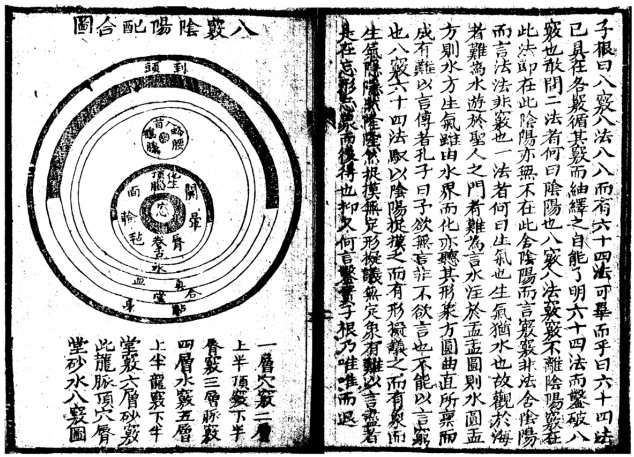 子根曰八竅八法八八而有六十四法可畢而乎曰六十四法
已具在各竅循其竅而紬繹之自能了明六十四法而鑿破八
竅也敢問二法者何曰陰陽也八竅八法竅竅不離陰陽竅在
此法即在此陰陽亦無不在此舍陰陽而言竅竅非法舍陰陽
而言法法非竅也一法者何曰生氣也生氣猶水也故觀於海
者難為水遊於聖人之門者難為言水注於盂盂圓則水圓盂
方則水方生氣雖由水界而化亦聽其形象方圓曲直所稟而
成有難以言傳者孔子曰予欲無言非不欲言也不能以言窮
也八竅六十四法馭以陰陽捉摸之而有形擬議之而有象而
生氣隱隱隆隆然捉摸無定形擬議無定象有難以言盡者
是在忘形忘象而後得也抑又何言鑿子根乃唯唯而退
八竅陰陽配合圖
到頭
化生
頂腦
唇
水
合
堂
一層穴竅二層
上半頂竅下半
唇竅三層脈竅
四層水竅五層
上半龍竅下半
堂竅六層砂竅
此龍脈頂穴唇
堂砂水八竅圖